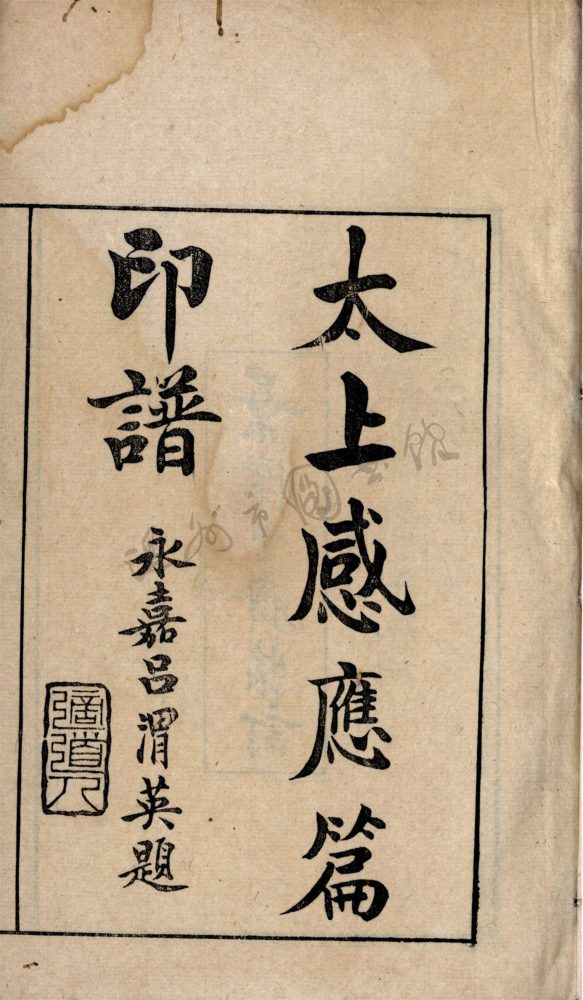 太上感應篇
印譜
永嘉呂渭英題
道人